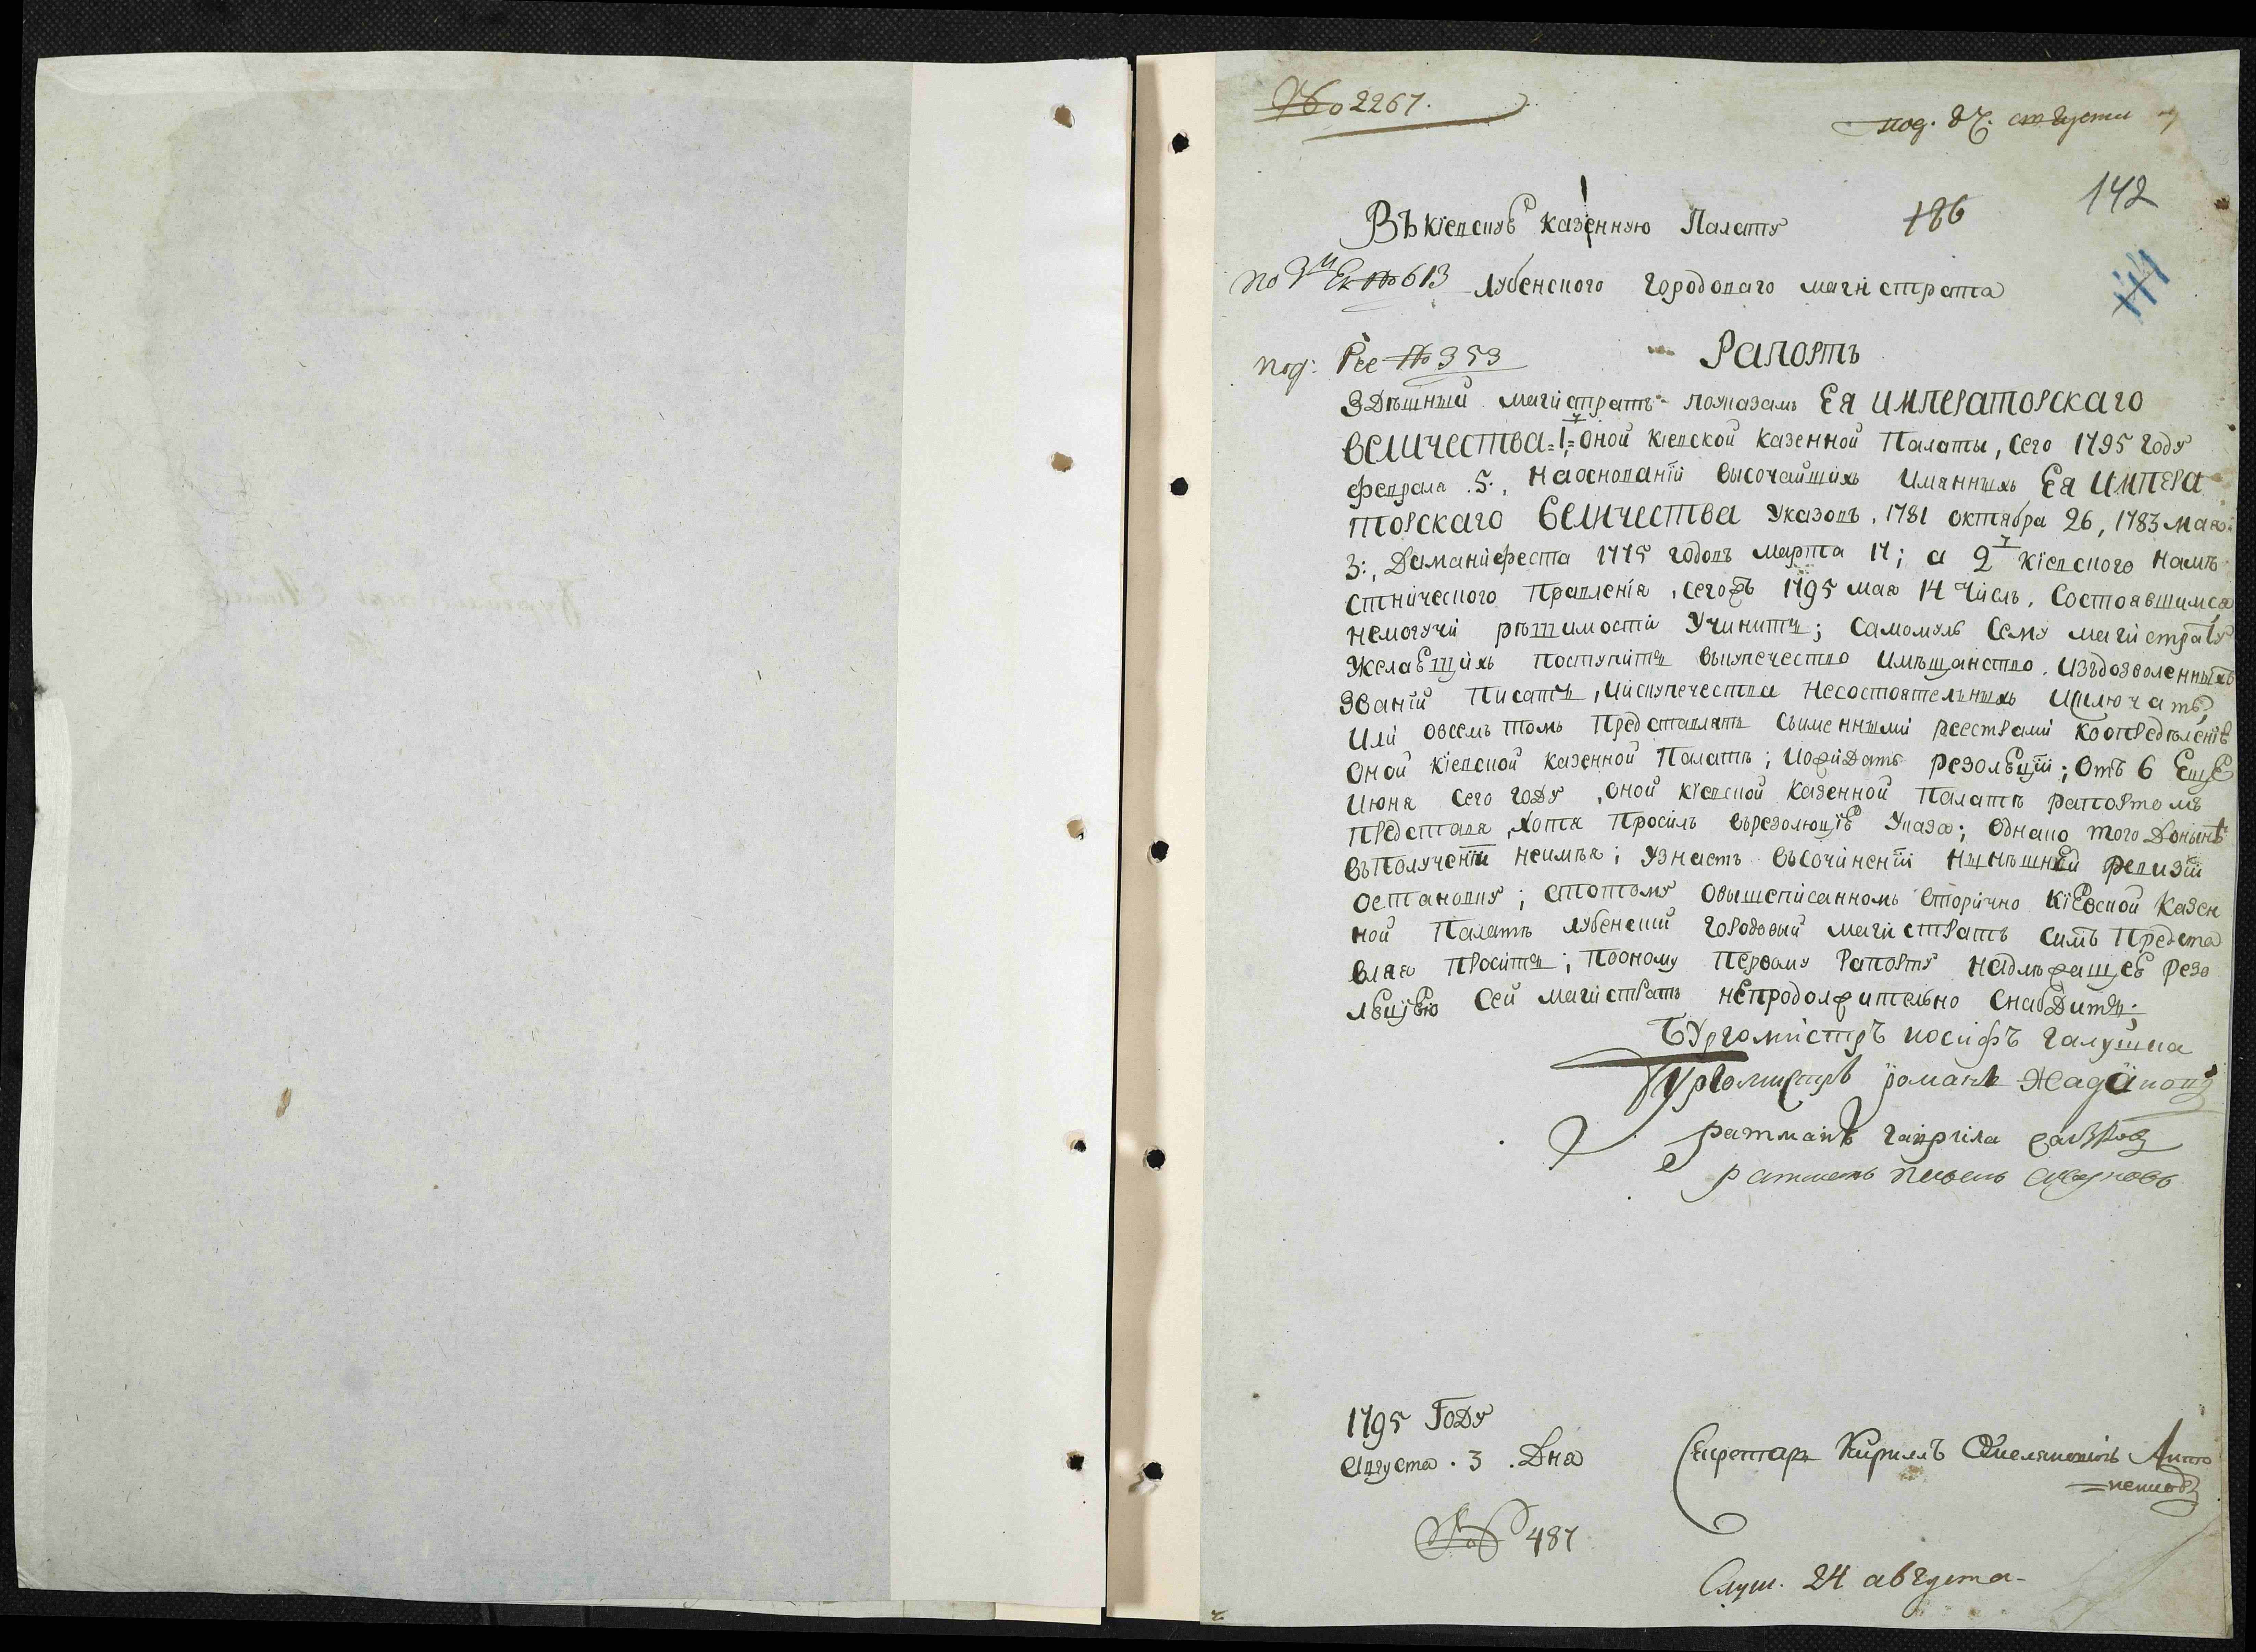 № 2267.
под. 27. августа
142
186
Въ Кіевскую Казенную Палату
по 3й Эк № 613
Лубенского Городоваго магистрата
141
под: Рее № 353
Рапортъ
Здѣшный магистратъ поуказамъ Ея Императорскаго
Величества 1й Оной Кіевской Казенной Палаты, Сего 1795 Году
февраля 5., Наоснованій Высочайшихъ Имянныхъ Ея Импера
торскаго Величества Указовъ, 1781 октября 26, 1783 мая
3:, Даманифеста 1775 годовъ марта 17; а 2й Кіевского Намѣ
стнического Правленія, сегожъ 1795 мая 14 Числъ, Состоявшимся
немогучи рѣшимости Учинить; Самомуль Сему магистрату
Желающихъ Поступить Вкупечество Имѣщанство, Изъдозволенныхъ
Званій Писать, Иискупечества Несостоятельныхъ Иключать,
Или Овсемъ Томъ Представлять Сыименными реестрами Коопредѣленію
Оной Кіевской Казенной Палатѣ; Иожидать резолюціи; Отъ 6 Еще
Июня Сего Году, Оной Кіевской Казенной Палатѣ рапортомъ
Представя, Хотя Просилъ Ворезолюцію Указа; Однако того Донынѣ
ВъПолученіи неимѣя; Узнаетъ Высочиненій Нынѣшней ревизіи
Остановку; Апотому Овышеписанномъ Вторично Кіевской Казен
ной Палатѣ Лубенский Городовый магистратъ Симъ Предста
вляя Проситъ; Пооному Первому Рапорту Надлежащею Резо
люціею Сей магистратъ Непродолжительно Снабдить;
Бургомистръ Иосифъ Галушка
Бургомистръ Романъ
Ратманъ Гаврила
Ратманъ
1795 Году
Августа. 3. Дня
Секретарь Кириллъ
№ 487
Слуш. 24 августа